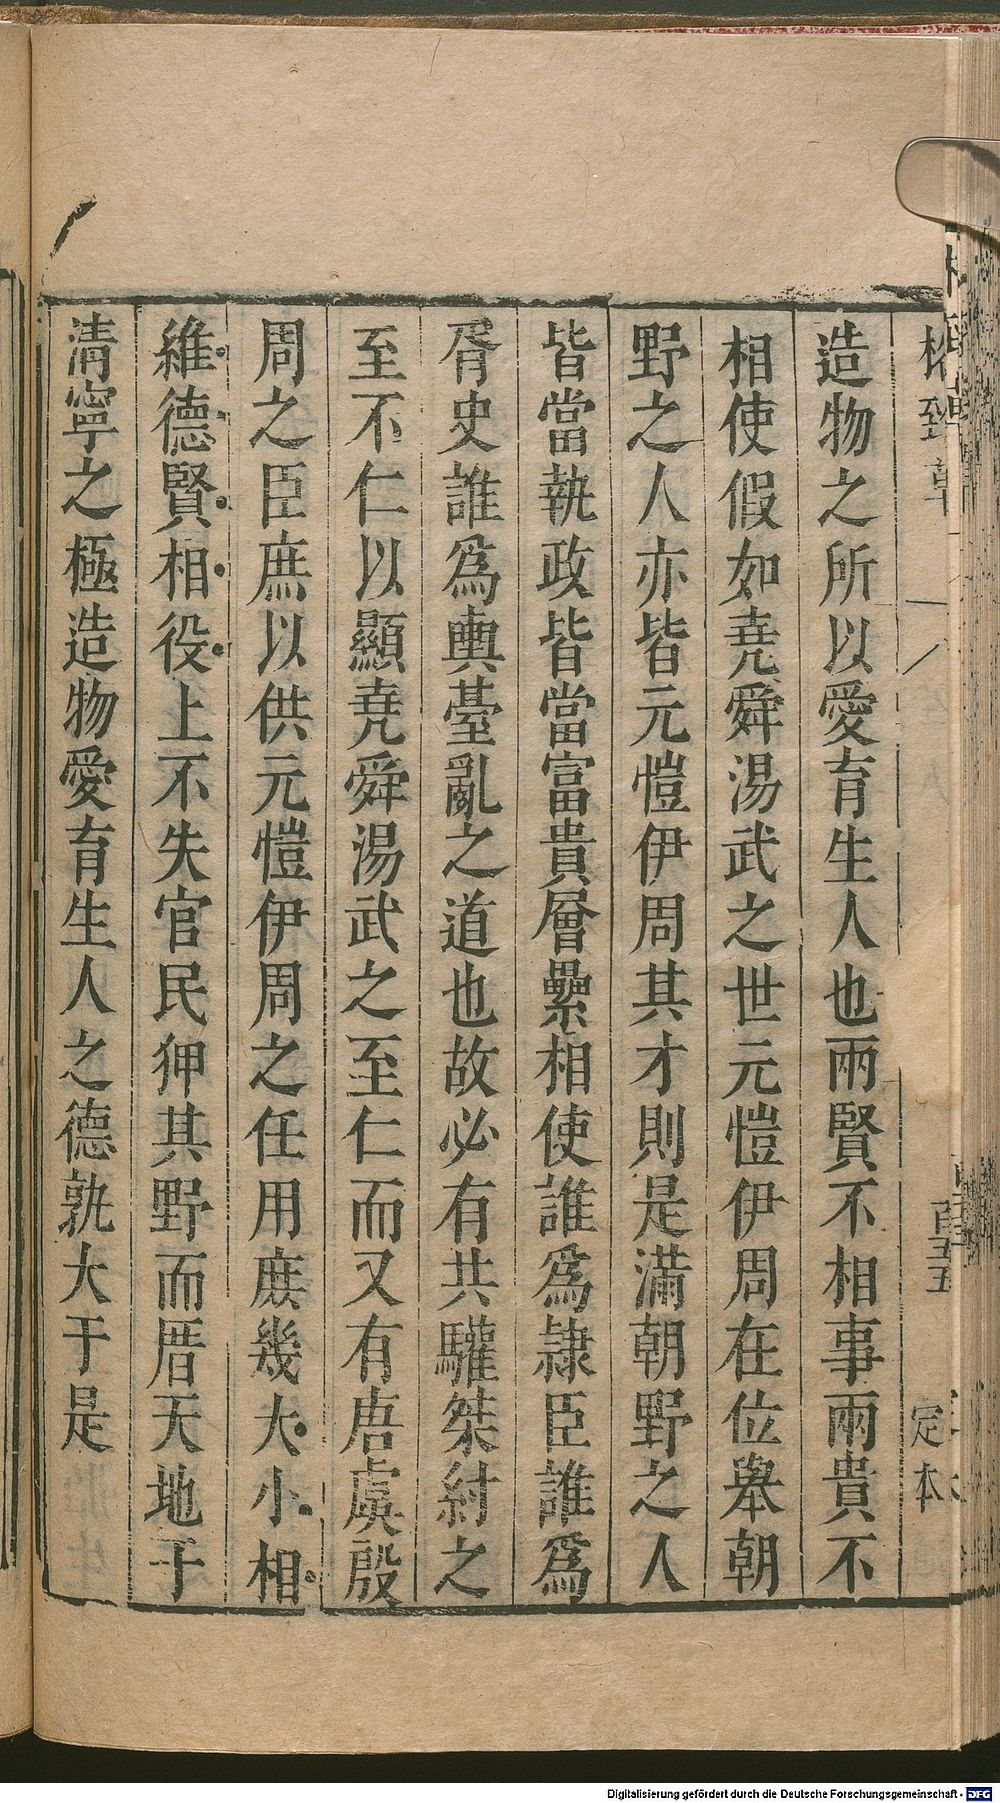 造物之所以愛育生人也兩賢不相事兩貴不
相使假如堯舜湯武之世元愷伊周在位舉朝
野之人亦皆元愷伊周其才則是滿朝野之人
皆當執政皆當富貴層纍相使誰爲隷臣誰爲
胥史誰爲輿臺亂之道也故必有共驩桀紂之
至不仁以顯堯舜湯武之至仁而又有唐虞殷
周之臣庶以供元愷伊周之任用庶幾大小相
維德賢相役上不失官民狎其野而厝天地于
清寧之極造物愛育生人之德孰大于是
定本
Digitalisierung gefördert durch die Deutsche Forschungsgemeinschaft - DFG